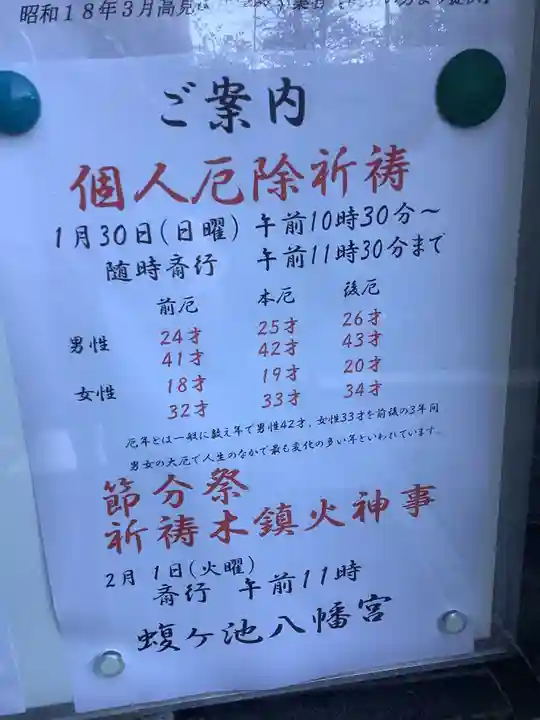 昭和18年3月高見
ご案内
個人厄除祈祷
1月30日(日曜) 午前10時30分〜
随時斎行 午前11時30分まで
前厄 本厄 後厄
男性 24才 25才 26才
41才 42才 43才
女性 18才 19才 20才
32才 33才 34才
厄年とは一般に数え年で男性42才、女性33才を前後の3年間
男女の大厄で人生のなかで最も変化の多い年といわれています。
節分祭
祈祷木鎮火神事
2月 1日(火曜)
斎行 午前11時
蝮ヶ池八幡宮